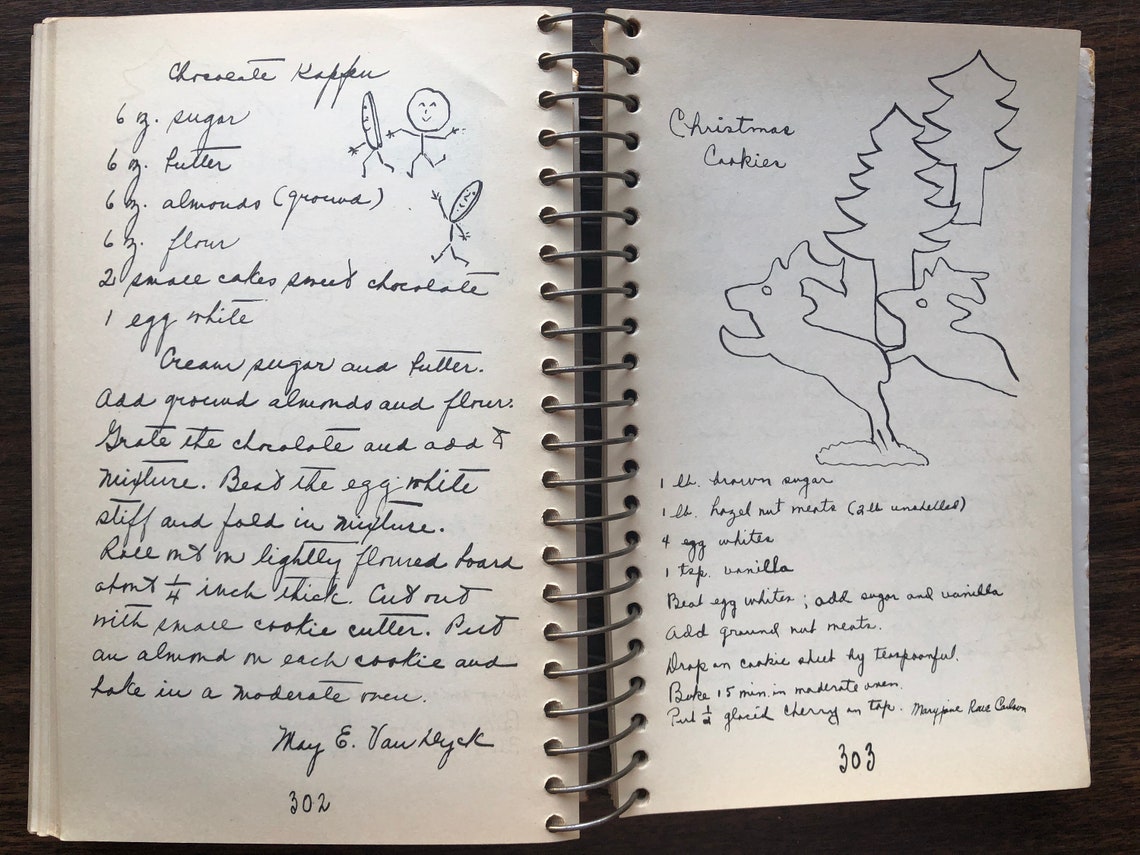 Chocolate Kappen
6 oz. sugar
6 oz. butter
6 oz. almonds (ground)
6 oz. flour
2 small cakes sweet chocolate
1 egg white
Cream sugar and butter.
Add ground almonds and flour.
Grate the chocolate and add to
mixture. Beat the egg white
stiff and fold in mixture.
Roll out on lightly floured board
about 1/4 inch thick. Cut out
with small cookie cutter. Put
an almond on each cookie and
bake in a moderate oven.
May E. Van Dyck
302
Christmas
Cookies
1 lb. brown sugar
1 lb. hazel nut meats (2 lb unshelled)
4 egg whites
1 tsp. vanilla
Beat egg whites; add sugar and vanilla
Add ground nut meats.
Drop on cookie sheet by teaspoonful.
Bake 15 min. in moderate oven.
Put 1/2 glacéd cherry on top. Maryjane Carlson
303